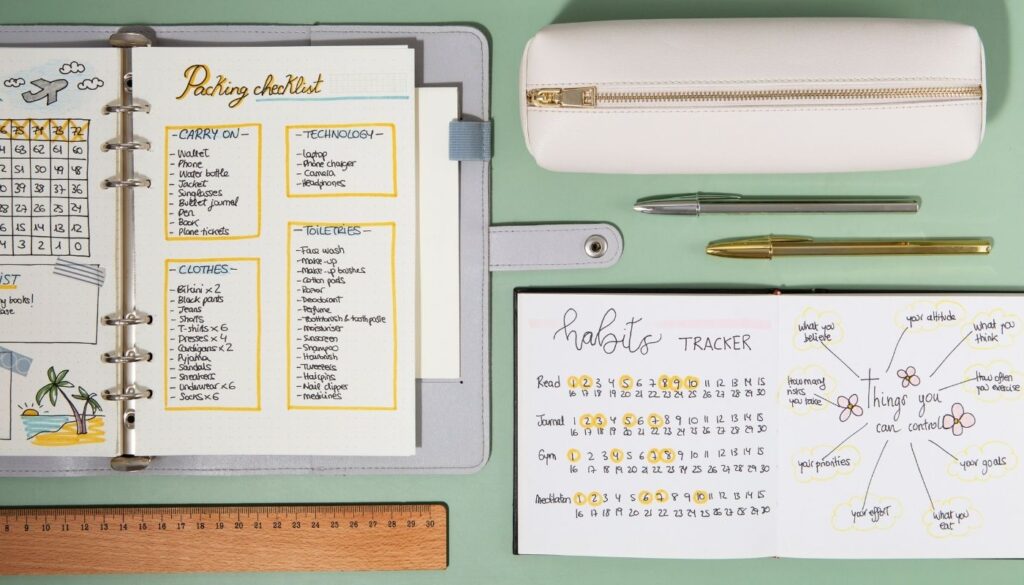 Packing checklist
- CARRY ON -
- Wallet
- Phone
- Water bottle
- Jacket
- Sunglasses
- Bullet journal
- Pen
- Book
- Plane tickets
- TECHNOLOGY -
- laptop
- Phone charger
- Camera
- Headphones
- CLOTHES -
- Bikini x 2
- Black pants
- Jeans
- Shorts
- T-shirts x 6
- Dresses x 4
- Cardigans x 2
- Pyjama
- Sandals
- Sneakers
- Underwear x 6
- Socks x 6
- TOILETRIES -
- Face wash
- Make-up
- Make-up brushes
- Cotton pads
- Razor
- Deodorant
- Perfume
- Toothbrush & toothpaste
- Moisturiser
- Sunscreen
- Shampoo
- Hairbrush
- Tweezers
- Hairpins
- Nail clipper
- medicines
75 74 73 72
63 62 61 60
51 50 49 48
39 38 37 36
27 26 25 24
15 14 13 12
4 3 2 1 0
IST
my books!
8 9 10 11 12 13 14 15 16 17 18 19 20 21 22 23 24 25 26 27 28 29 30
habits TRACKER
Read 1 2 3 4 5 6 7 8 9 10 11 12 13 14 15
16 17 18 19 20 21 22 23 24 25 26 27 28 29 30
Journal 1 2 3 4 5 6 7 8 9 10 11 12 13 14 15
16 17 18 19 20 21 22 23 24 25 26 27 28 29 30
Gym 1 2 3 4 5 6 7 8 9 10 11 12 13 14 15
16 17 18 19 20 21 22 23 24 25 26 27 28 29 30
Meditation 1 2 3 4 5 6 7 8 9 10 11 12 13 14 15
16 17 18 19 20 21 22 23 24 25 26 27 28 29 30
what you
believe
your attitude
what you
think
How many
risks
you take
How often
you exercise
Things you
can control
your priorities
your goals
your effort
what you
eat